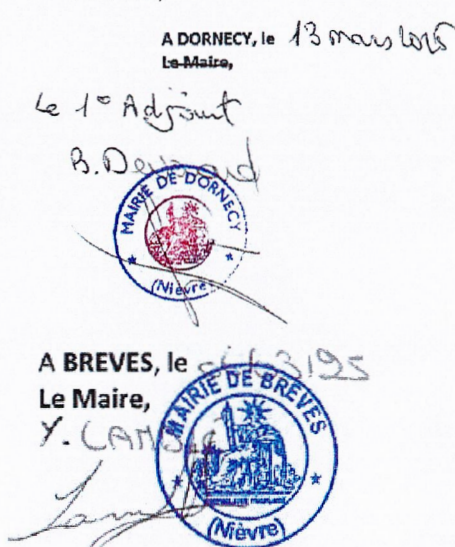 A DORNECY, le 13 mars 2025
Le Maire,
Le 1° Adjoint
B.
MAIRIE DE DORNECY
(Nièvre)
A BREVES, le
Le Maire,
Y.
MAIRIE DE BREVES
(Nièvre)